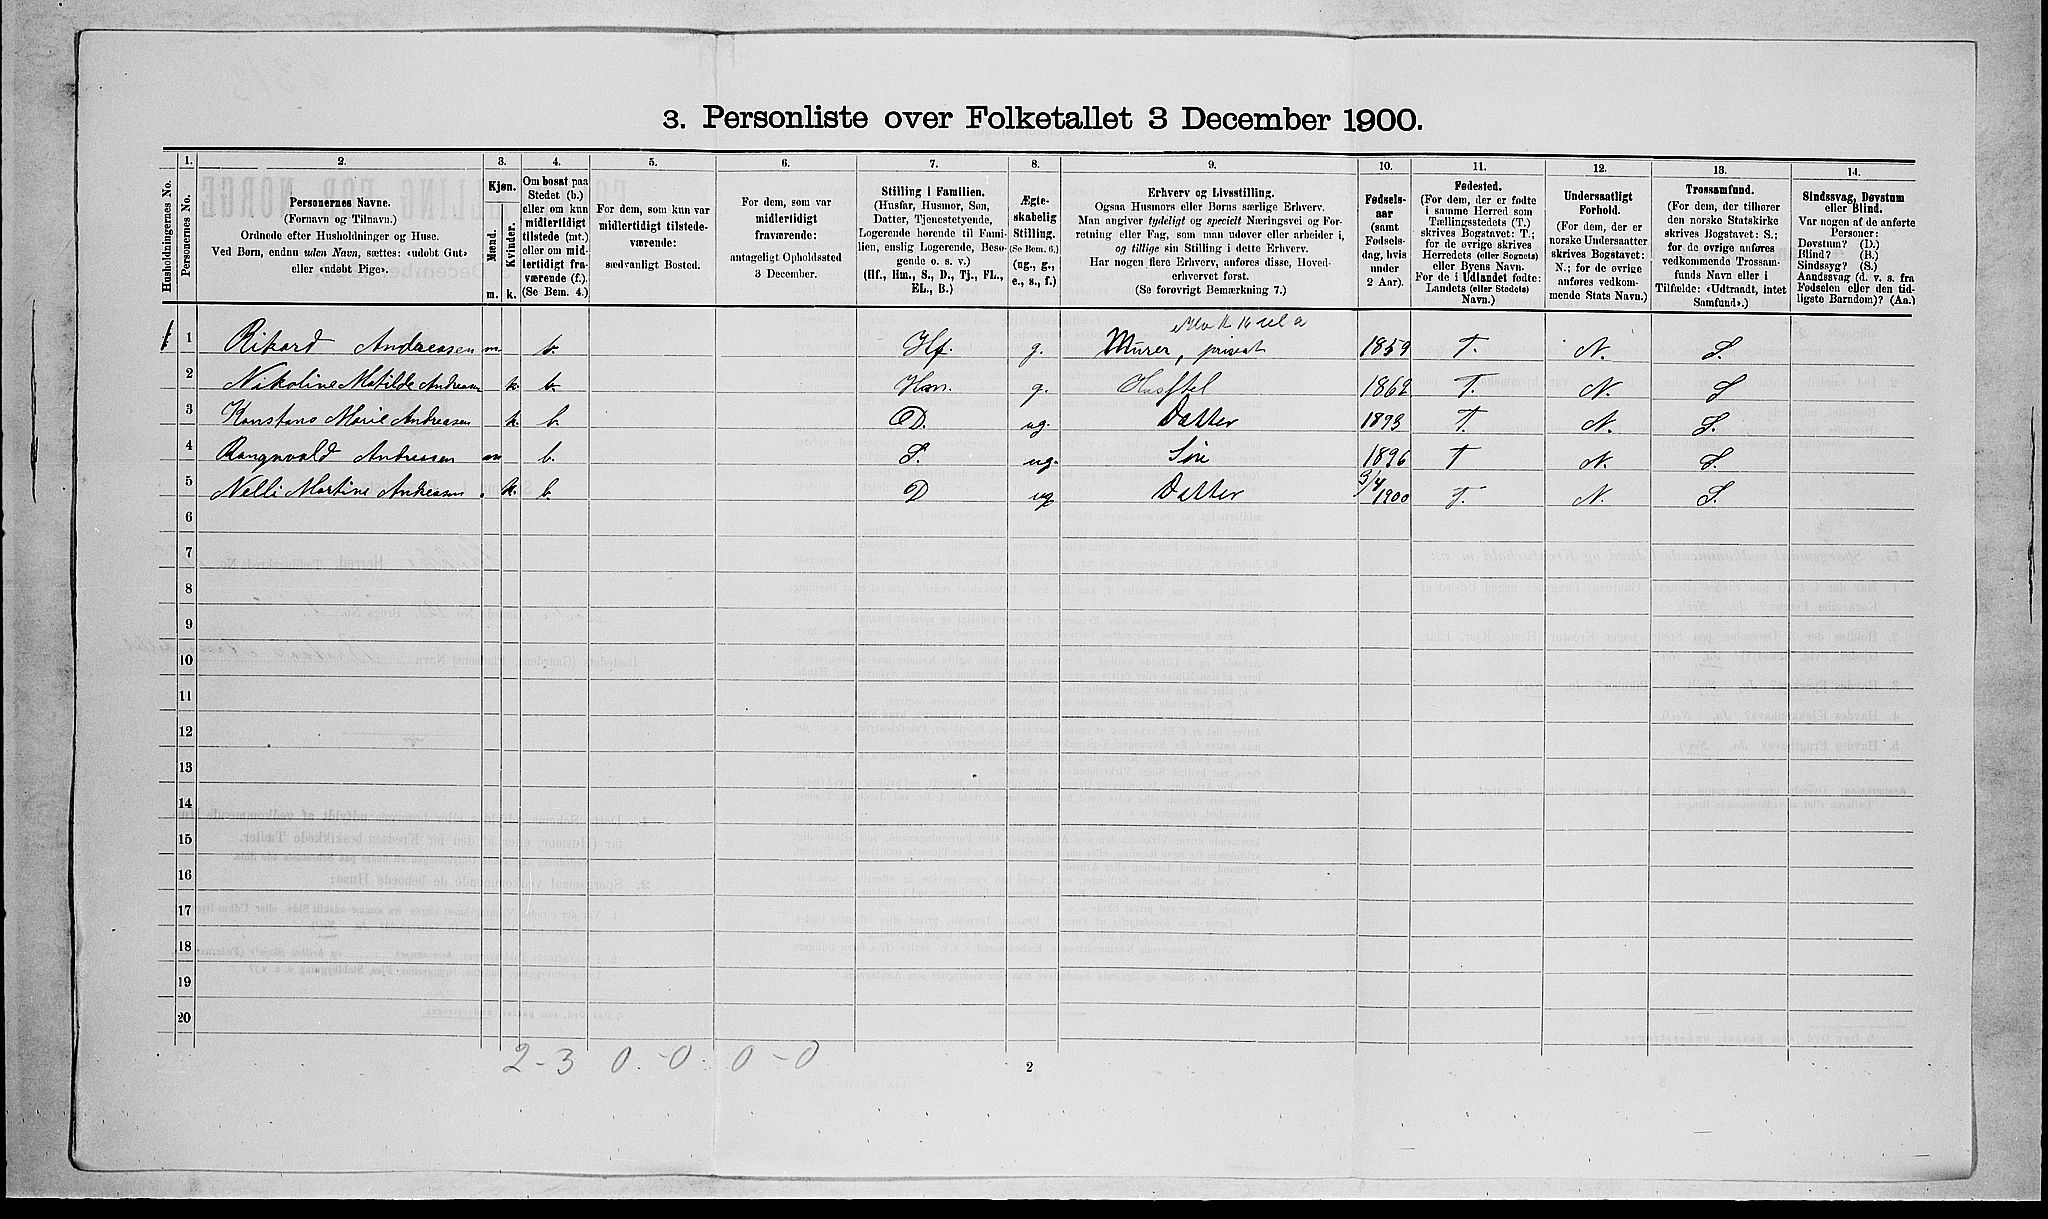 3. Personliste over Folketallet 3 December 1900.
Husholdningernes No.
1. Personernes No.
2. Personernes Navne.
(Fornavn og Tilnavn.)
Ordnede efter Husholdninger og Huse.
Ved Børn, endnu uden Navn, sættes: «udøbt Gut»
eller «udøbt Pige».
3. Kjøn.
Mænd. Kvinder.
m. k.
4. Om bosat paa
Stedet (b.)
eller om kun
midlertidigt
tilstede (mt.)
eller om mid-
lertidigt fra-
værende (f.).
(Se Bem. 4.)
5. For dem, som kun var
midlertidigt tilstede-
værende:
sædvanligt Bosted.
6. For dem, som var
midlertidigt
fraværende:
antageligt Opholdssted
3 December.
7. Stilling i Familien.
(Husfar, Husmor, Søn,
Datter, Tjenestetyende,
Logerende hørende til Fami-
lien, enslig Logerende, Besø-
gende o. s. v.)
(Hf., Hm., S., D., Tj., FL.,
EL., B.)
8. Ægte-
skabelig
Stilling.
(Se Bem. 6.)
(ug., g.,
e., s., f.)
9. Erhverv og Livsstilling.
Ogsaa Husmors eller Børns særlige Erhverv.
Man angiver tydeligt og specielt Næringsvei og For-
retning eller Fag, som man udøver eller arbeider i,
og tillige sin Stilling i dette Erhverv.
Har nogen flere Erhverv, anføres disse, Hoved-
erhvervet først.
(Se forøvrigt Bemærkning 7.)
10. Fødsels-
aar
(samt
Fødsels-
dag, hvis
under
2 Aar).
11. Fødested.
(For dem, der er fødte
i samme Herred som
Tællingsstedets (T.)
skrives Bogstavet: T.;
for de øvrige skrives
Herredets (eller Sognets)
eller Byens Navn.
For de i Udlandet fødte:
Landets (eller Stedets)
Navn.)
12. Undersaatligt
Forhold.
(For dem, der er
norske Undersaatter
skrives Bogstavet:
N.; for de øvrige
anføres vedkom-
mende Stats Navn.)
13. Trossamfund.
(For dem, der tilhører
den norske Statskirke
skrives Bogstavet: S.;
for de øvrige anføres
vedkommende Trossam-
funds Navn eller i
Tilfælde: «Udtraadt, intet
Samfund».)
14. Sindssvag, Døvstum
eller Blind.
Var nogen af de anførte
Personer:
Døvstum? (D.)
Blind? (B.)
Sindssyg? (S.)
Aandssvag (d. v. s. fra
Fødselen eller den tid-
ligste Barndom)? (Aa.)
1 Rikard Andreasen m b. Hf. g. Murer, privat 1859 T. N. S.
2 Nikoline Matilde Andreasen k. b. Hm. g. Husstel 1862 T. N. S
3 Konstans Marie Andreasen k. b. D. ug. Datter 1893 T. N. S.
4 Rangnvald Andreasen m b. S. ug. Søn 1896 T N. S.
5 Nelli Martine Andreasen k. b. D ug Datter 3/4 1900 T. N. S.
6
7
8
9
10
11
12
13
14
15
16
17
18
19
20
2-3 0-0 0-0
2